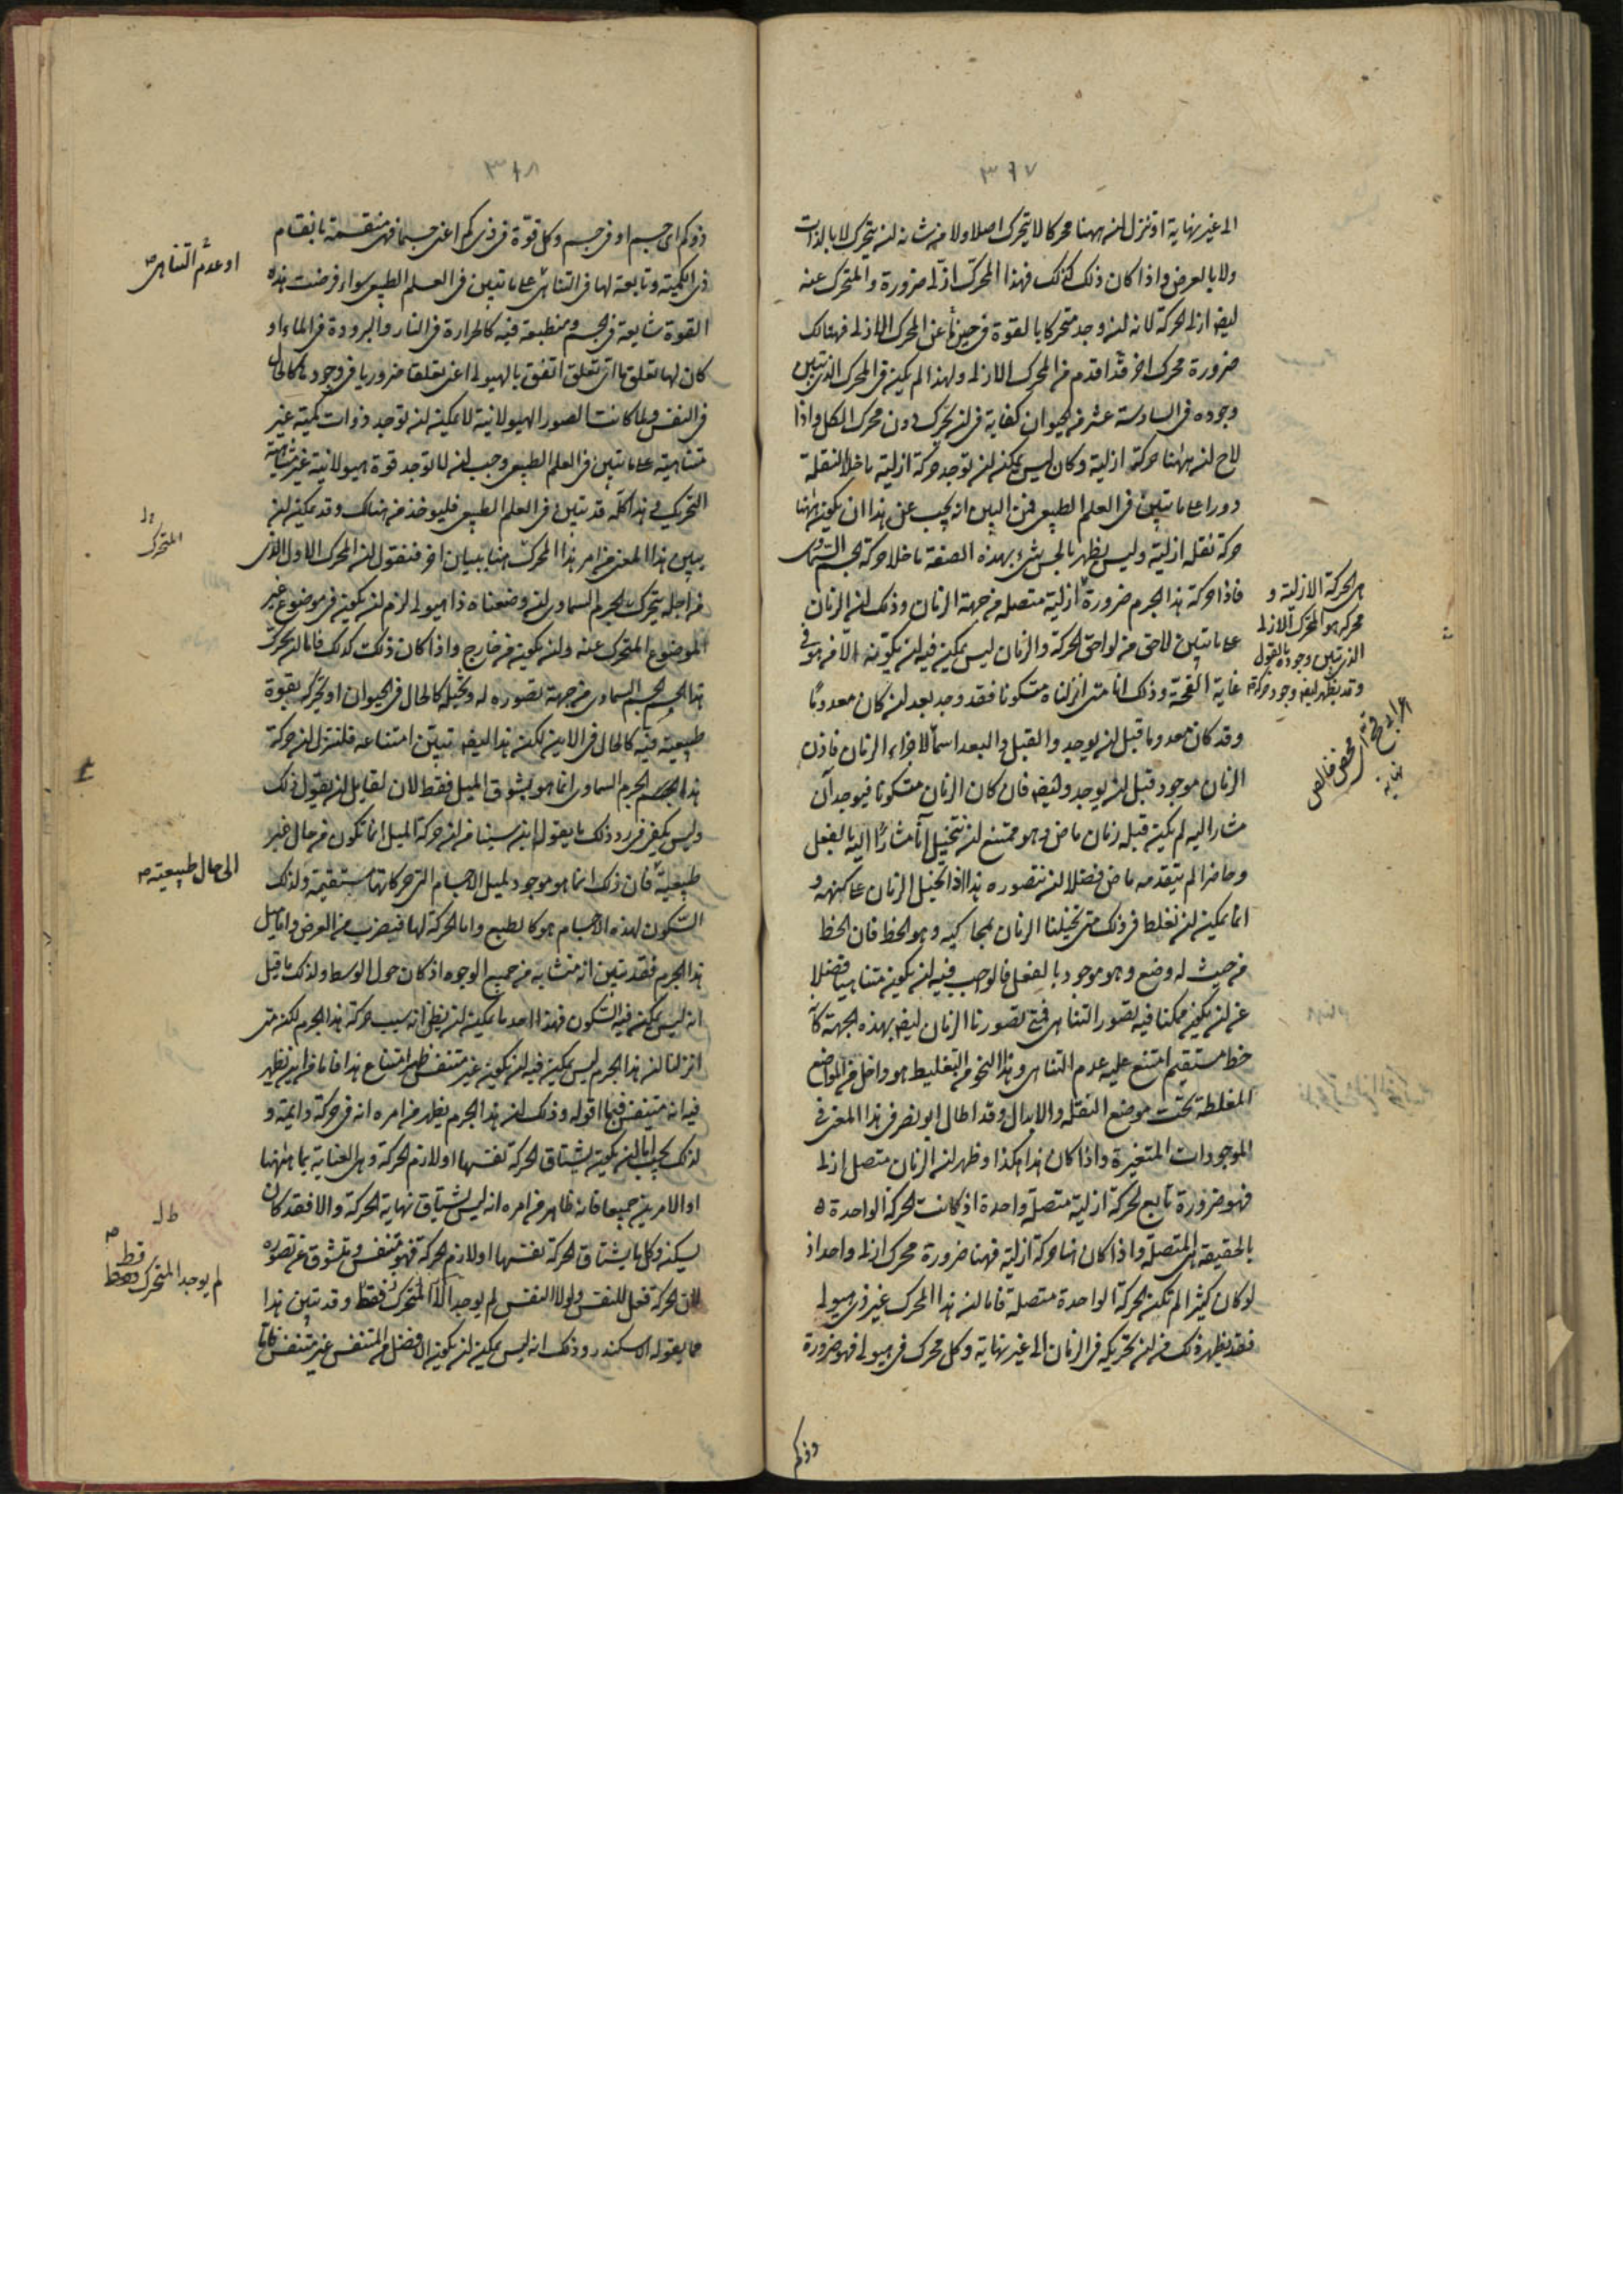 ٣٦٧
الى غير نهاية او ننزل ان ههنا محركا لا يتحرك اصلا ولا من شانه ان يتحرك لا بالذات
ولا بالعرض واذا كان ذلك كذلك فهذا المحرك ازلى ضرورة والمتحرك عنه
ايضا ازلى الحركة لانه ان وجد متحركا بالقوة فى حين ما عن المحرك الازلى فهنالك
ضرورة محرك اخر اقدم من المحرك الازلى ولهذا لم يكن فى المحرك الذى تبين
وجوده فى السادسة عشر من الحيوان كفاية فى ان يحرك دون محرك الكل واذا
لاح ان ههنا حركة ازلية وكان ليس يمكن ان توجد حركة ازلية ما خلا النقلة
دورا على ما تبين فى العلم الطبيعى فمن البين انه يجب عن هذا ان يكون ههنا
حركة نقلة ازلية وليس يظهر بالحس شئ بهذه الصفة ما خلا حركة الجسم السماوى
فاذا حركة هذا الجرم ضرورة ازلية متصلة من جهة الزمان وذلك ان الزمان
على ما تبين لاحق من لواحق الحركة والزمان ليس يمكن فيه ان يكونه الا من هو فى
غاية القحة وذلك انا متى انزلناه متكونا فقد وجد بعد ان كان معدوما
وقد كان معدوما قبل ان يوجد والقبل والبعد اسما لاجزاء الزمان فاذن
الزمان موجود قبل ان يوجد وايضا فان كان الزمان متكونا فيوجد آن
مشار اليه لم يكن قبله زمان ماض وهو ممتنع ان نتخيل آنا مشارا اليه بالفعل
وحاضرا لم يتقدمه ماض فضلا ان نتصوره هذا اذا تخيل الزمان على كنهه و
انما يمكن ان نغلط فى ذلك متى تخيلنا الزمان بمحاكيه وهو الخط فان الخط
من حيث له وضع وهو موجود بالفعل فالواجب فيه ان يكون متناهيا فضلا
عن ان يكون ممكنا فيه تصور التناهى فمتى تصورنا الزمان ايضا بهذه الجهة كانه
خط مستقيم امتنع عليه عدم التناهى وهذا النحو من التغليط هو داخل من المواضع
المغلطة تحت موضع النقلة والابدال وقد اطال ابو نصر فى هذا المعنى فى
الموجودات المتغيرة واذا كان هذا هكذا وظهر ان الزمان متصل ازلى
فهو ضرورة تابع لحركة ازلية متصلة واحدة اذ كانت الحركة الواحدة
بالحقيقة هى المتصلة واذا كان هنا حركة ازلية فههنا ضرورة محرك ازلى واحد اذ
لو كان كثيرا لم تكن الحركة الواحدة متصلة فاما ان هذا المحرك غير ذى هيولى
فقد يظهر ذلك من ان تحريكه فى الزمان الى غير نهاية وكل محرك فى هيولى فهو ضرورة
هى الحركة الازلية و
محركه هو المحرك الازلى
الذى تبين وجوده بالقول
وقد يظهر ايضا وجود حركة
محض خالص
وذكم
٣٦٨
ذو كم اى جسم او فى جسم وكل قوة فى ذى كم اعنى جسما فهى منقسمة بانقسام
ذى الكمية وتابعة لها فى التناهى على ما تبين فى العلم الطبيعى سواء فرضت هذه
القوة شايعة فى الجسم ومنطبعة فيه كالحرارة فى النار والبرودة فى الماء او
كان لها تعلق ما اى تعلق اتفق بالهيولى اعنى تعلقا ضروريا فى وجودها كالحال
فى النفس ولما كانت الصور الهيولانية لا يمكن ان توجد ذوات كمية غير
متناهية على ما تبين فى العلم الطبيعى وجب ان لا توجد قوة هيولانية غير متناهية
التحريك وهذا كله قد تبين فى العلم الطبيعى فليوخذ من هنالك وقد يمكن ان
يبين هذا المعنى من امر هذا المحرك هنا ببيان اخر فنقول ان المحرك الاول الذى
من اجله يتحرك الجرم السماوى ان وضعناه ذا هيولى لزم ان يكون فى موضوع غير
الموضوع المتحرك عنه وان يكون من خارج واذا كان ذلك كذلك فاما ان يحرك
هذا الجسم السماوى من جهة تصوره له وتخيله كالحال فى الحيوان او يحركه بقوة
طبيعية فيه كالحال فى الاين لكن هذا ايضا تبين امتناعه فلننزل ان حركة
هذا الجرم السماوى انما هو بشوق الميل فقط لان لقايل ان يقول ذلك
وليس يكفى فى رد ذلك ما يقوله ابن سينا من ان حركة الميل انما تكون من حال غير
طبيعية فان ذلك انما هو موجود لميل الاجسام التى حركاتها مستقيمة ولذلك
السكون لهذه الاجسام هو كالطبع واما الحركة لها فبضرب من العرض واما ميل
هذا الجرم فقد تبين انه متشابه من جميع الوجوه اذ كان حول الوسط ولذلك ما قيل
انه ليس يمكن فيه السكون فهذا احد ما يمكن ان يظن انه سبب حركة هذا الجرم لكن متى
انزلنا ان هذا الجرم ليس يمكن فيه ان يكون غير متنفس ظهر امتناع هذا فاما من اين نظهر
فيه انه متنفس فبما اقوله وذلك ان هذا الجرم يظهر من امره انه فى حركة دايمة و
لذلك يجب اما ان يكون يشتاق الحركة نفسها او لازم الحركة وهى العناية بما ههنا
او الامرين جميعا فانه ظاهر من امره انه ليس يشتاق نهاية الحركة والا فقد كان
يسكن وكل ما يشتاق الحركة نفسها او لازم الحركة فهو متنفس ومتشوق عن تصوره
لان الحركة فعل للنفس ولولا النفس لم يوجد الا المتحرك فقط وقد تبين هذا
مما يقوله الاسكندر وذلك انه ليس يمكن ان يكون الافضل من المتنفس غير متنفس فاما
او عدم التناهى
المتحرك
الى حال طبيعية
لم يوجد المتحرك قط